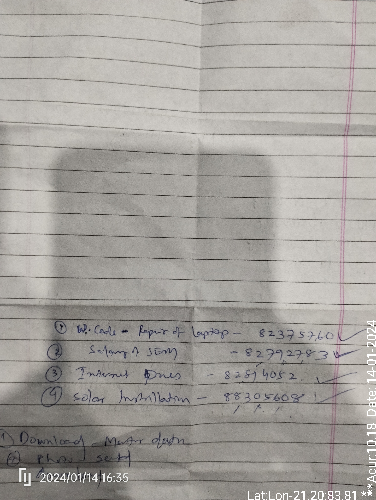 ① W. Code - Repair of laptop - 82375760 ✓
② Salary of SEM - 82792783 ✓
③ Internet - 82514052
④ Solar Installation - 88305608
1) Download
② Photo
2024/01/14 16:35
Lat Lon-21.20.83.81
***Acur:10.18 Date,14-01-2024